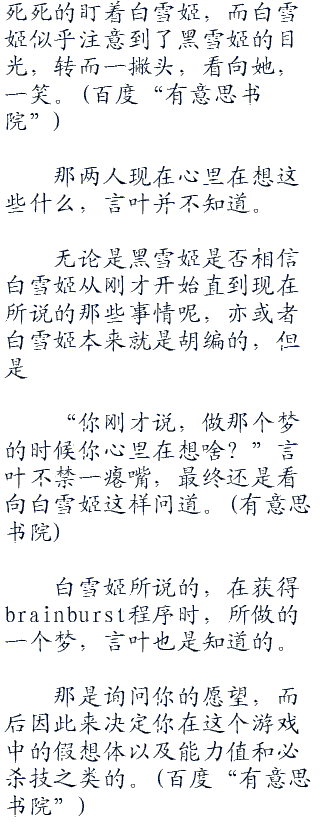 死死的盯着白雪姬，而白雪
姬似乎注意到了黑雪姬的目
光，转而一撇头，看向她，
一笑。(百度“有意思书
院”)
那两人现在心里在想这
些什么，言叶并不知道。
无论是黑雪姬是否相信
白雪姬从刚才开始直到现在
所说的那些事情呢，亦或者
白雪姬本来就是胡编的，但
是
“你刚才说，做那个梦
的时候你心里在想啥？”言
叶不禁一瘪嘴，最终还是看
向白雪姬这样问道。(有意思
书院)
白雪姬所说的，在获得
brainburst程序时，所做的
一个梦，言叶也是知道的。
那是询问你的愿望，而
后因此来决定你在这个游戏
中的假想体以及能力值和必
杀技之类的。(百度“有意思
书院”)